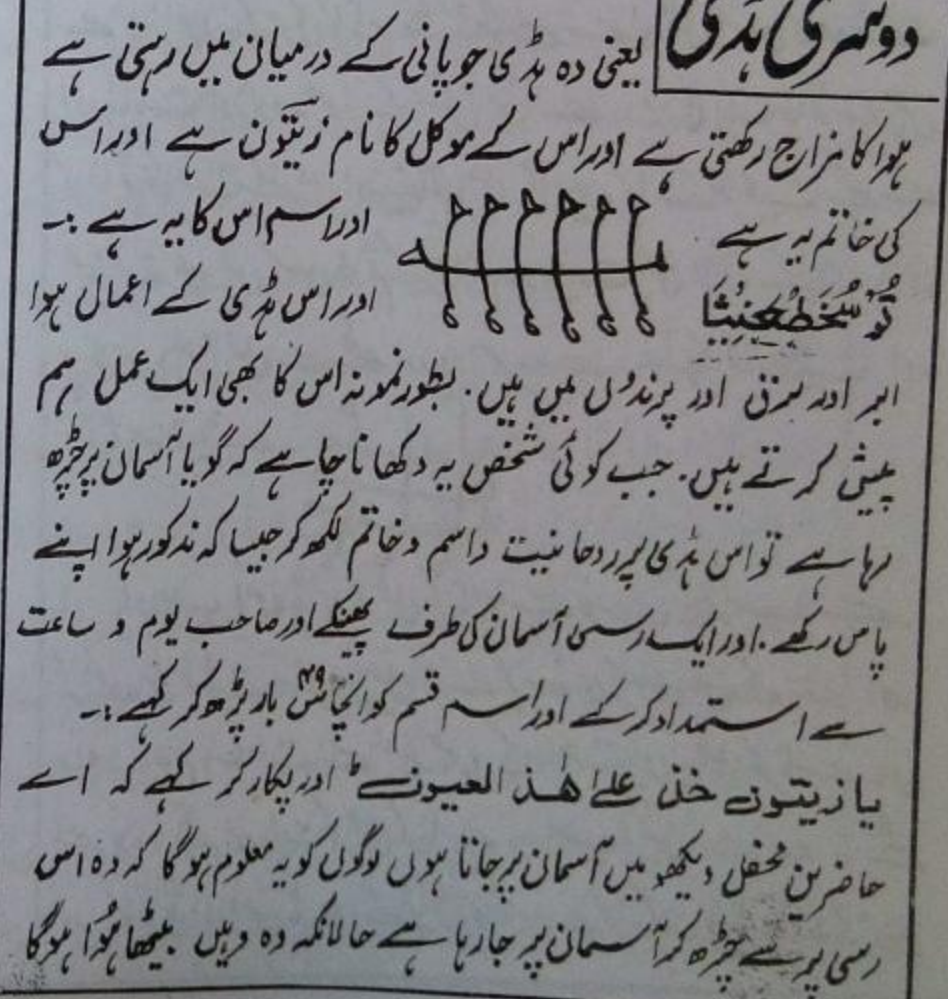 دوسری ہڈی
یعنی وہ ہڈی جو پانی کے درمیان میں رہتی ہے
ہوا کا مزاج رکھتی ہے اور اس کے موکل کا نام زیتون ہے اور اس
کی خاتم یہ ہے اور اسم اس کا یہ ہے :۔
اور اس ہڈی کے اعمال ہوا
ابر اور برق اور پرندوں میں ہیں۔ بطور نمونہ اس کا بھی ایک عمل ہم
پیش کرتے ہیں۔ جب کوئی شخص یہ دکھانا چاہے کہ گویا آسمان پر چڑھ
رہا ہے تو اس ہڈی پر روحانیت واسم وخاتم لکھ کر جیسا کہ مذکور ہوا اپنے
پاس رکھے۔ اور ایک رسی آسمان کی طرف پھینکے اور صاحب یوم و ساعت
سے استمداد کر کے اور اسم قسم کو بار پڑھ کر کہے :۔
یا زیتون خذ علی ھٰذ العیون ط اور پکار کر کہے کہ اے
حاضرین محفل دیکھو میں آسمان پر جاتا ہوں لوگوں کو یہ معلوم ہوگا کہ وہ اس
رسی پر سے چڑھ کر آسمان پر جا رہا ہے حالانکہ وہ وہیں بیٹھا ہُوا ہوگا